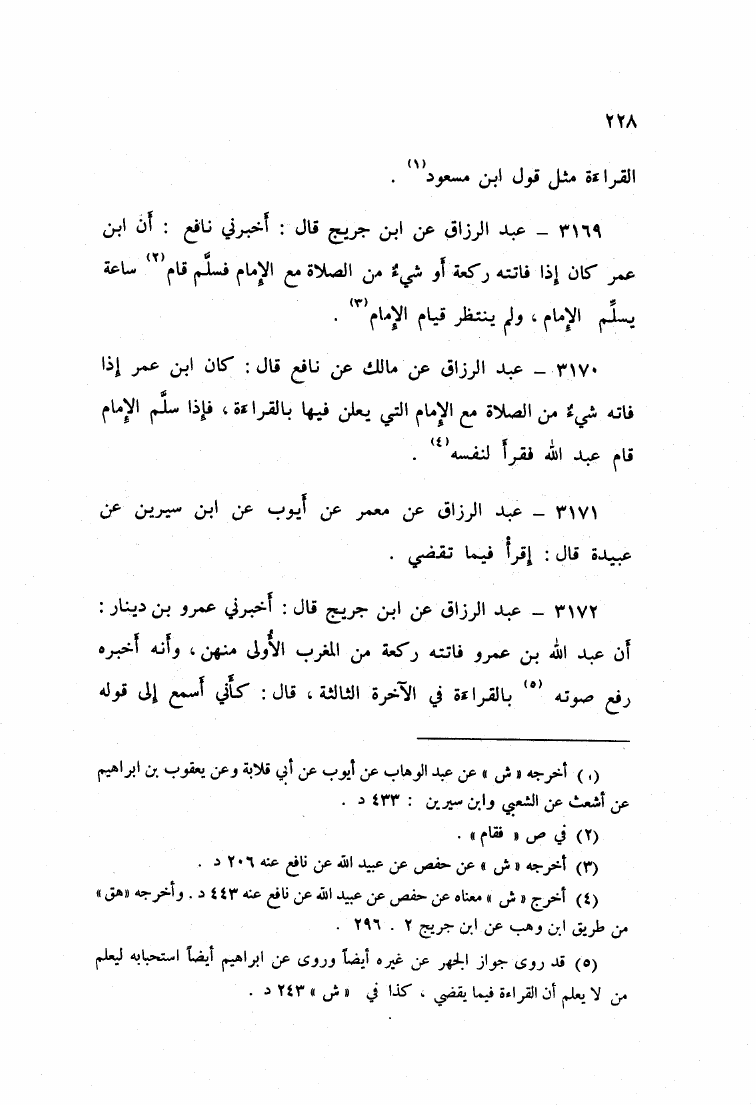 ٢٢٨
القراءة مثل قول ابن مسعود(١) .
٣١٦٩ – عبد الرزاق عن ابن جريج قال : أخبرني نافع : أن ابن
عمر كان إذا فاتته ركعة أو شيءٌ من الصلاة مع الإمام فسلَّم قام(٢) ساعة
يسلِّم الإمام ، ولم ينتظر قيام الإمام(٣) .
٣١٧٠ – عبد الرزاق عن مالك عن نافع قال : كان ابن عمر إذا
فاته شيءٌ من الصلاة مع الإمام التي يعلن فيها بالقراءة ، فإذا سلَّم الإمام
قام عبد الله فقرأ لنفسه(٤) .
٣١٧١ – عبد الرزاق عن معمر عن أيوب عن ابن سيرين عن
عبيدة قال : إقرأْ فيما تقضي .
٣١٧٢ – عبد الرزاق عن ابن جريج قال : أخبرني عمرو بن دينار :
أن عبد الله بن عمرو فاتته ركعة من المغرب الأُولى منهن ، وأنه أخبره
رفع صوته (٥) بالقراءة في الآخرة الثالثة ، قال : كأني أسمع إلى قوله
(١) أخرجه «ش» عن عبد الوهاب عن أيوب عن أبي قلابة وعن يعقوب بن ابراهيم
عن أشعث عن الشعبي وابن سيرين : ٤٣٣ د .
(٢) في ص « فقام » .
(٣) أخرجه «ش» عن حفص عن عبيد الله عن نافع عنه ٢٠٦ د .
(٤) أخرج «ش» معناه عن حفص عن عبيد الله عن نافع عنه ٤٤٣ د . وأخرجه «هق»
من طريق ابن وهب عن ابن جريج ٢ . ٢٩٦ .
(٥) قد روى جواز الجهر عن غيره أيضاً وروى عن ابراهيم أيضاً استحبابه ليعلم
من لا يعلم أن القراءة فيما يقضي ، كذا في «ش» ٢٤٣ د .